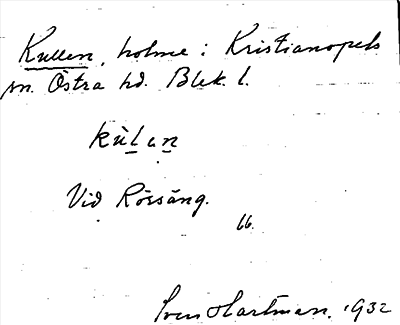 Kullen, holme i Kristianopels
sn. Östra hd. Blek. l.
kùlan
Vid Rössäng.
66.
Sven Hartman. 1932